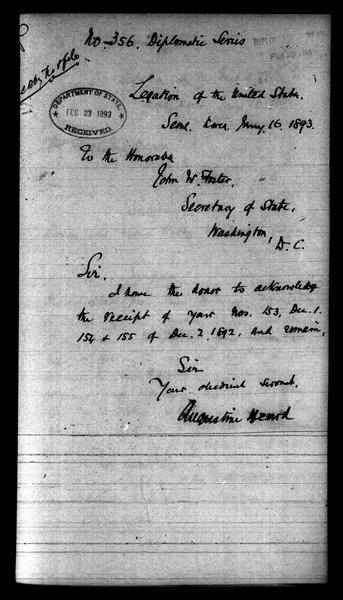 No 356. Diplomatic Series
DEPARTMENT OF STATE,
FEB 23 1893
RECEIVED.
Legation of the United States.
Seoul, Korea Jany. 16. 1893.
To the Honorable
John W. Foster,
Secretary of State,
Washington,
D. C.
Sir,
I have the honor to acknowledge
the receipt of your Nos. 153, Dec. 1.
154 & 155 of Dec. 2, 1892, and remain,
Sir
Your obedient servant,
Augustine Heard